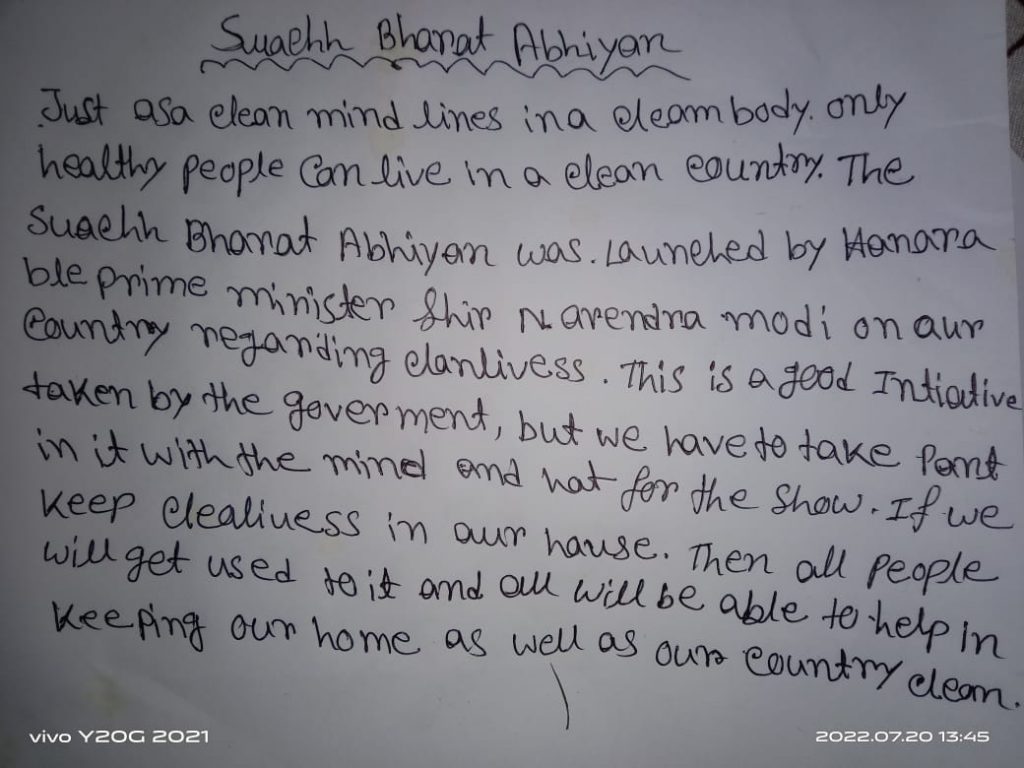 Swachh Bharat Abhiyan
Just asa clean mind lines in a cleam body. only
healthy people Can live in a clean country. The
Swachh Bharat Abhiyan was. Launched by Honara
ble prime minister Shir Narendra modi on aur
Country regarding clanlivess. This is a good Intiative
taken by the goverment, but we have to take Part
in it with the mind and not for the show. If we
keep clealiness in aur hause. Then all people
will get used to it and all will be able to help in
keeping our home as well as our country clean.
vivo Y20G 2021
2022.07.20 13:45